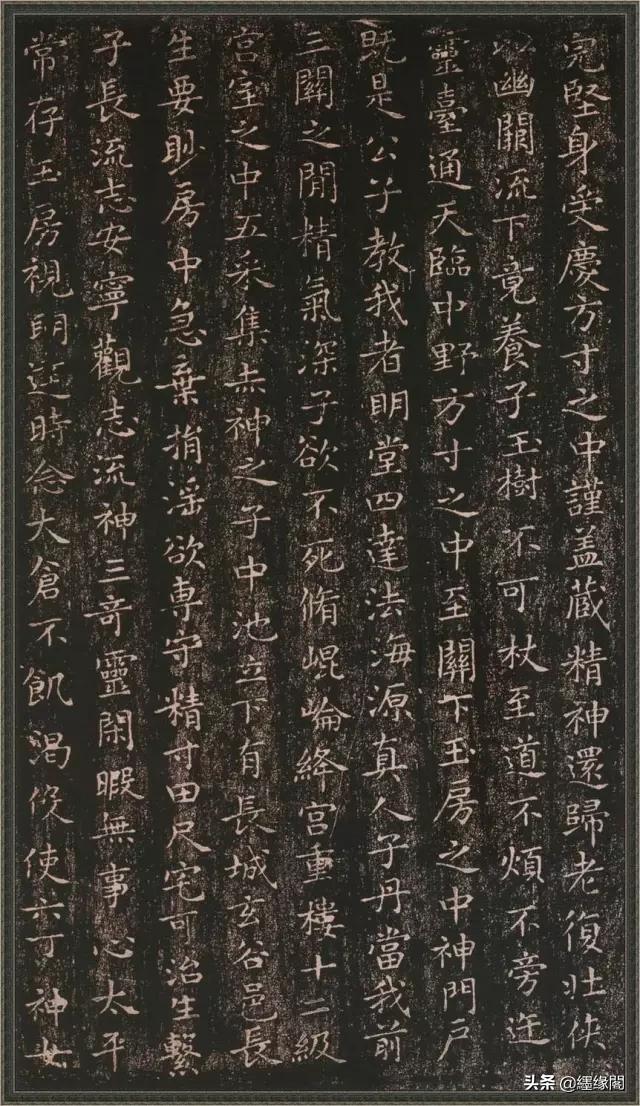 完堅身受慶方寸之中謹盖蔵精神還歸老復壯侠
以幽闕流下竟養子玉樹不可杖至道不煩不旁迕
靈臺通天臨中野方寸之中至關下玉房之中神門户
既是公子教我者明堂四達法海源真人子丹當我前
三關之間精氣深子欲不死脩崐崘絳宫重樓十二級
宫室之中五采集赤神之子中池立下有長城玄谷邑長
生要眇房中急棄捐淫欲專守精寸田尺宅可治生繫
子長流志安寧觀志流神三奇靈閑暇無事心太平
常存玉房視明達時念大倉不飢渴伇使六丁神女
头条 @纆缘閣